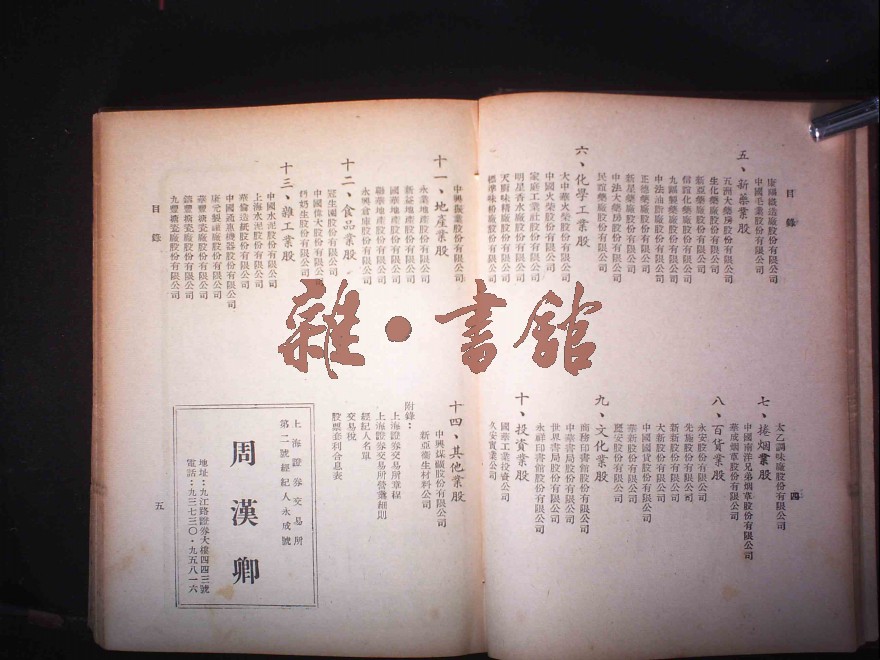 目錄
康福織造廠股份有限公司
中國毛業股份有限公司
五、新藥業股
五洲大藥房股份有限公司
生化藥廠股份有限公司
新亞藥廠股份有限公司
信誼化學藥廠股份有限公司
九福製藥廠股份有限公司
中法油脂廠股份有限公司
正德藥廠股份有限公司
新星藥廠股份有限公司
中法大藥房股份有限公司
民誼藥廠股份有限公司
六、化學工業股
大中華火柴股份有限公司
中國火柴股份有限公司
家庭工業社股份有限公司
明星香水廠股份有限公司
天廚味精廠股份有限公司
標準味粉廠股份有限公司
太乙調味廠股份有限公司
七、捲烟業股
中國南洋兄弟烟草股份有限公司
華成烟草股份有限公司
八、百貨業股
永安股份有限公司
先施股份有限公司
新新股份有限公司
大新股份有限公司
中國國貨股份有限公司
華新股份有限公司
麗安股份有限公司
九、文化業股
商務印書館股份有限公司
中華書局股份有限公司
世界書局股份有限公司
永祥印書館股份有限公司
十、投資業股
國華工業投資公司
久安實業公司
四
中興振業股份有限公司
十一、地產業股
永業地產股份有限公司
新益地產股份有限公司
國華地產股份有限公司
聯華地產股份有限公司
永興倉庫股份有限公司
十二、食品業股
冠生園股份有限公司
中國偉大股份有限公司
鮮奶生股份有限公司
十三、雜工業股
中國水泥股份有限公司
上海水泥股份有限公司
華倫造紙股份有限公司
中國通惠機器股份有限公司
康元製罐廠股份有限公司
華豐搪瓷廠股份有限公司
鑄豐搪瓷廠股份有限公司
九豐搪瓷廠股份有限公司
目錄
十四、其他業股
中興煤礦股份有限公司
新亞衞生材料公司
附錄:
上海證券交易所章程
上海證券交易所營業細則
經紀人名單
交易稅
股票套利合息表
上海證券交易所
第二號經紀人永成號
周漢卿
地址:九江路證券大樓四四三號
電話:九三七三〇·九五八一六
五
雜·書舘